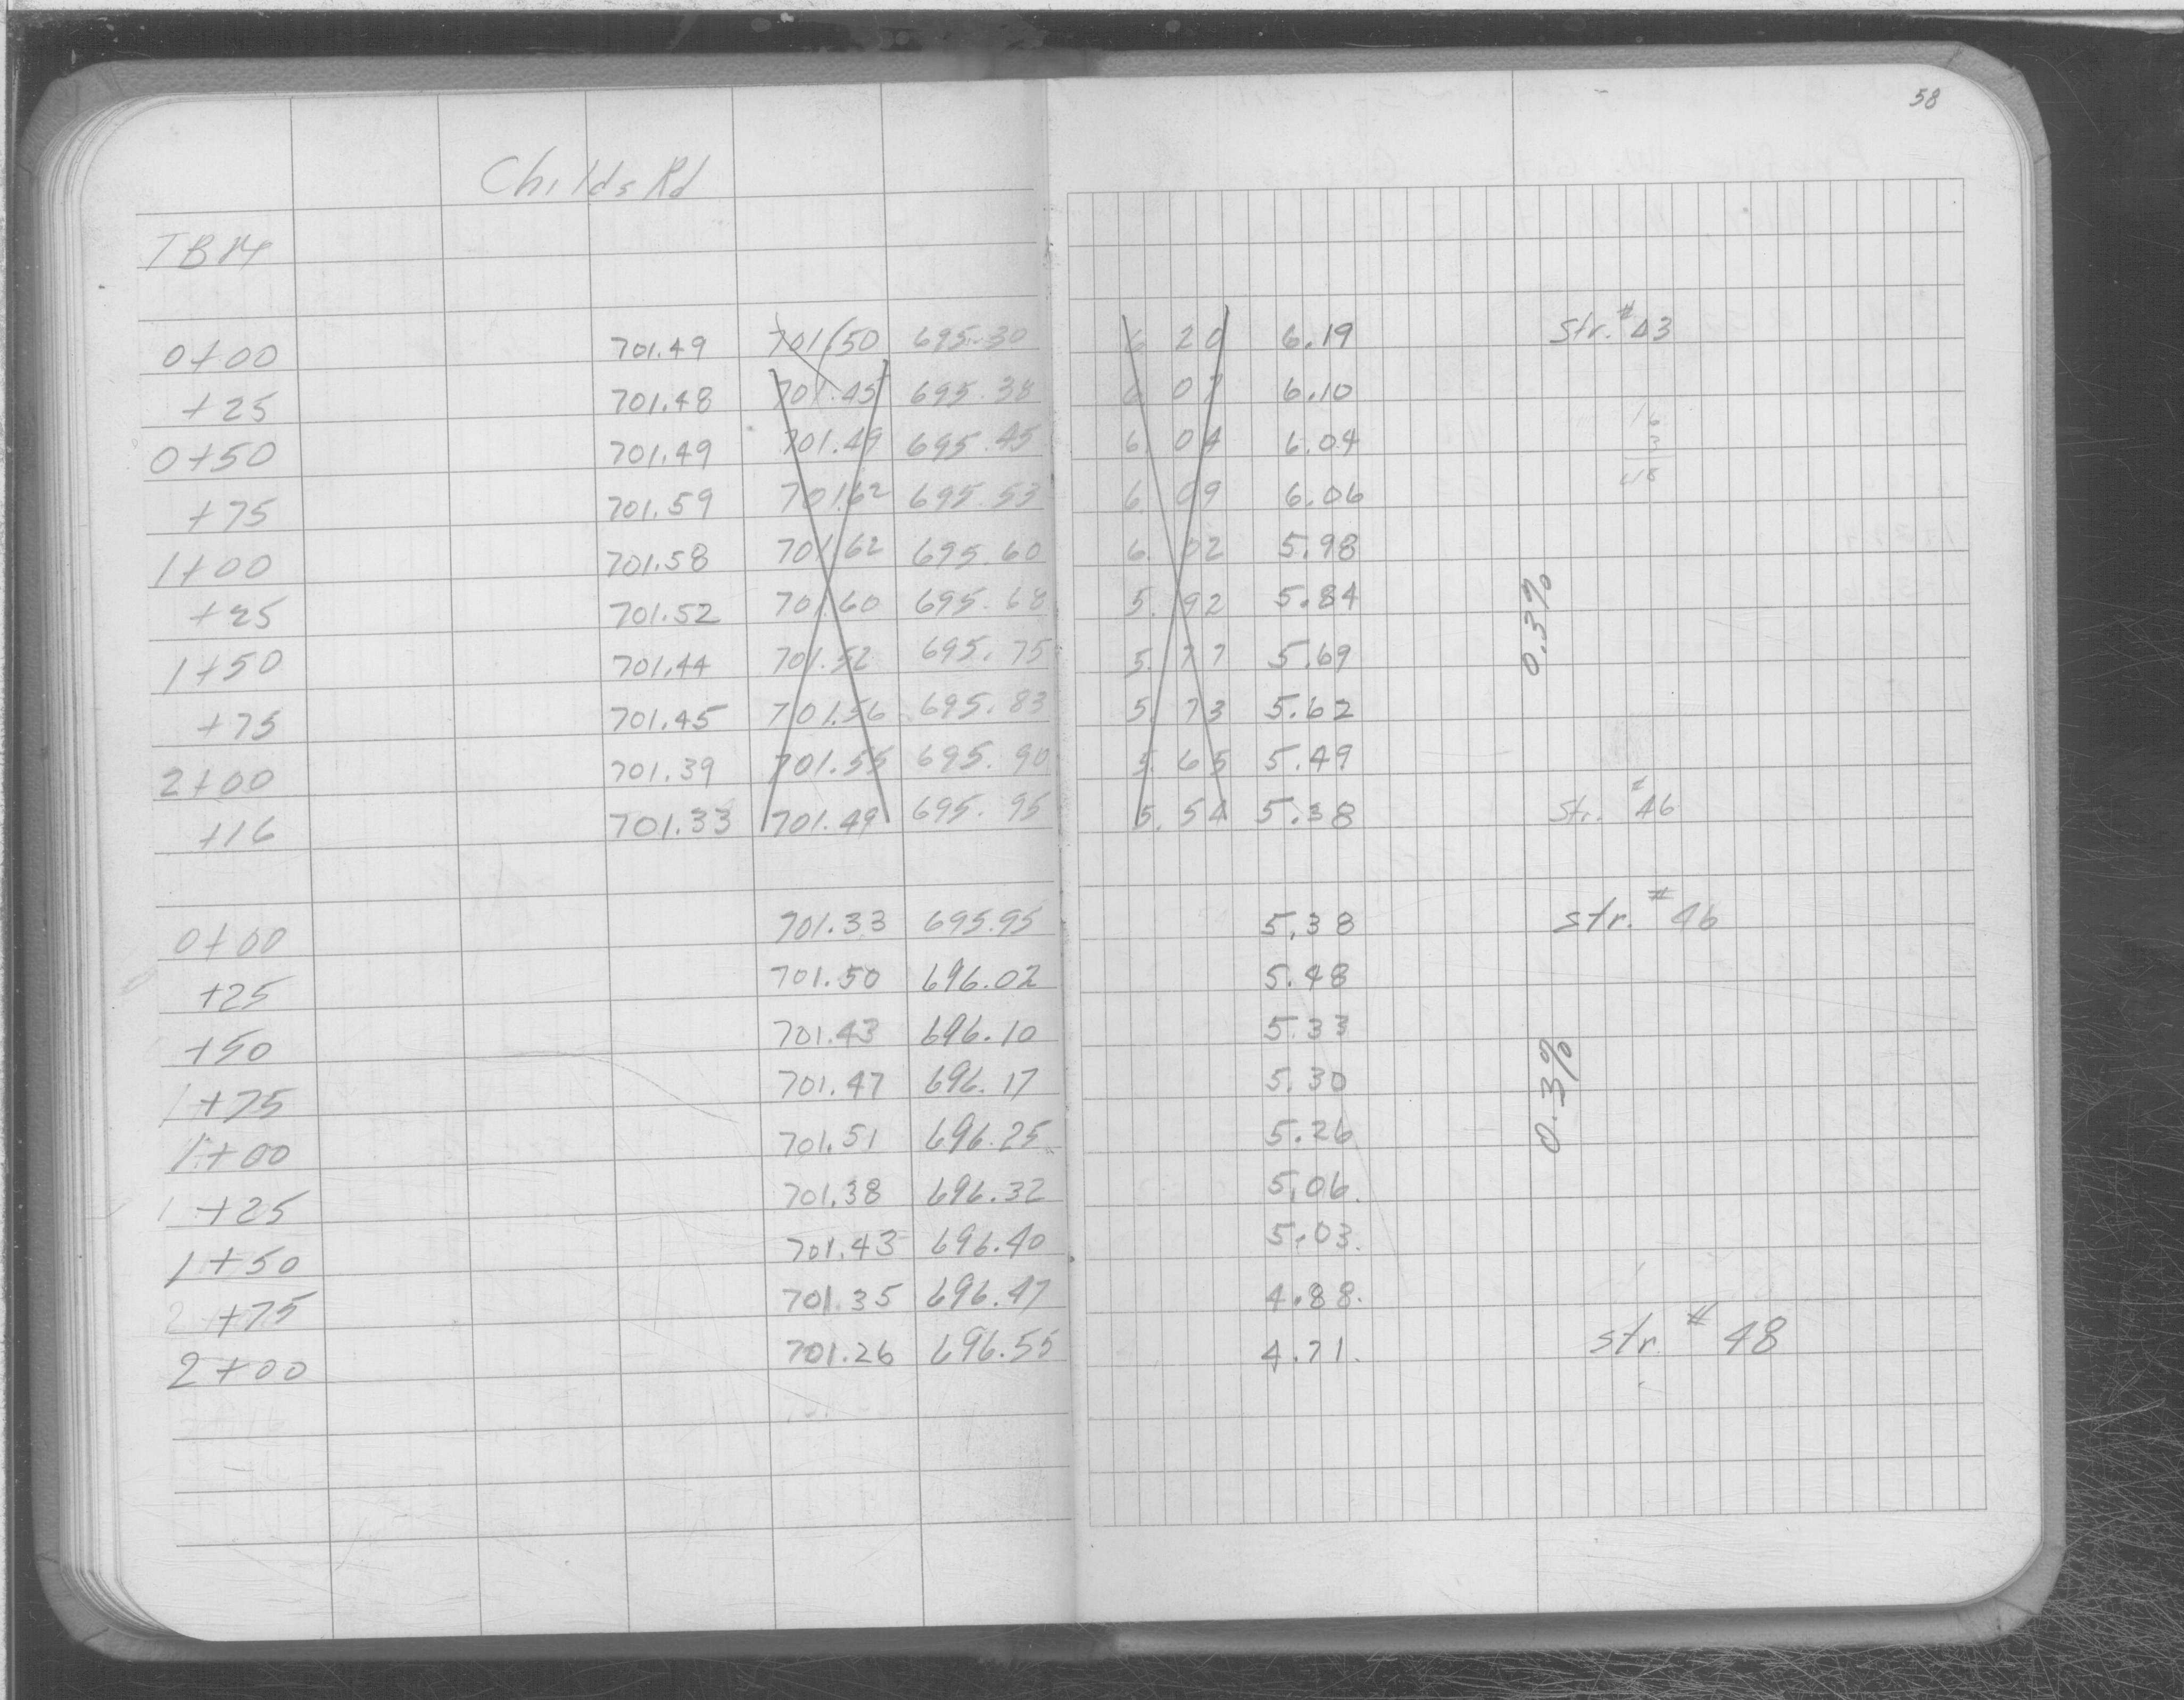 58
Childs Rd
TBM
0+00 701.49 701.50 695.30 6 20 6.19 Str. # 43
+25 701.48 701.45 695.38 6 07 6.10
0+50 701.49 701.49 695.45 6. 04 6.04
+75 701.59 701.62 695.53 6. 09 6.06
1+00 701.58 701.62 695.60 6. 02 5.98
+25 701.52 701.60 695.68 5. 92 5.84
1+50 701.44 701.52 695.75 5. 77 5.69
+75 701.45 701.56 695.83 5. 73 5.62
2+00 701.39 701.55 695.90 5. 65 5.49
+16 701.33 701.49 695.95 5. 54 5.38 Str. # 46
16
3
48
0.3%
0+00 701.33 695.95 5.38 str. # 46
+25 701.50 696.02 5.48
+50 701.43 696.10 5.33
+75 701.47 696.17 5.30
1+00 701.51 696.25 5.26
1 +25 701.38 696.32 5.06.
1+50 701.43 696.40 5.03.
+75 701.35 696.47 4.88.
2+00 701.26 696.55 4.71. str # 48
0.3%